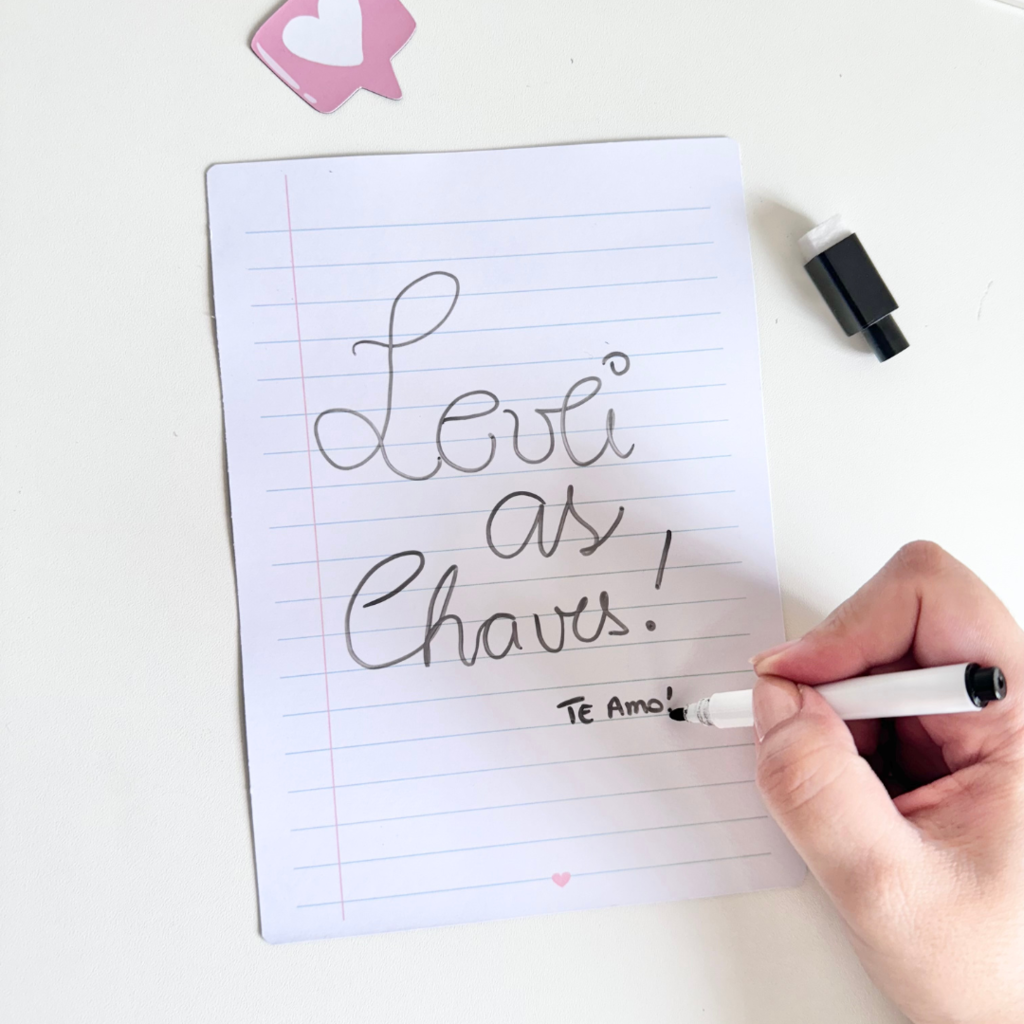 Levei
as
Chaves!
TE AMO!